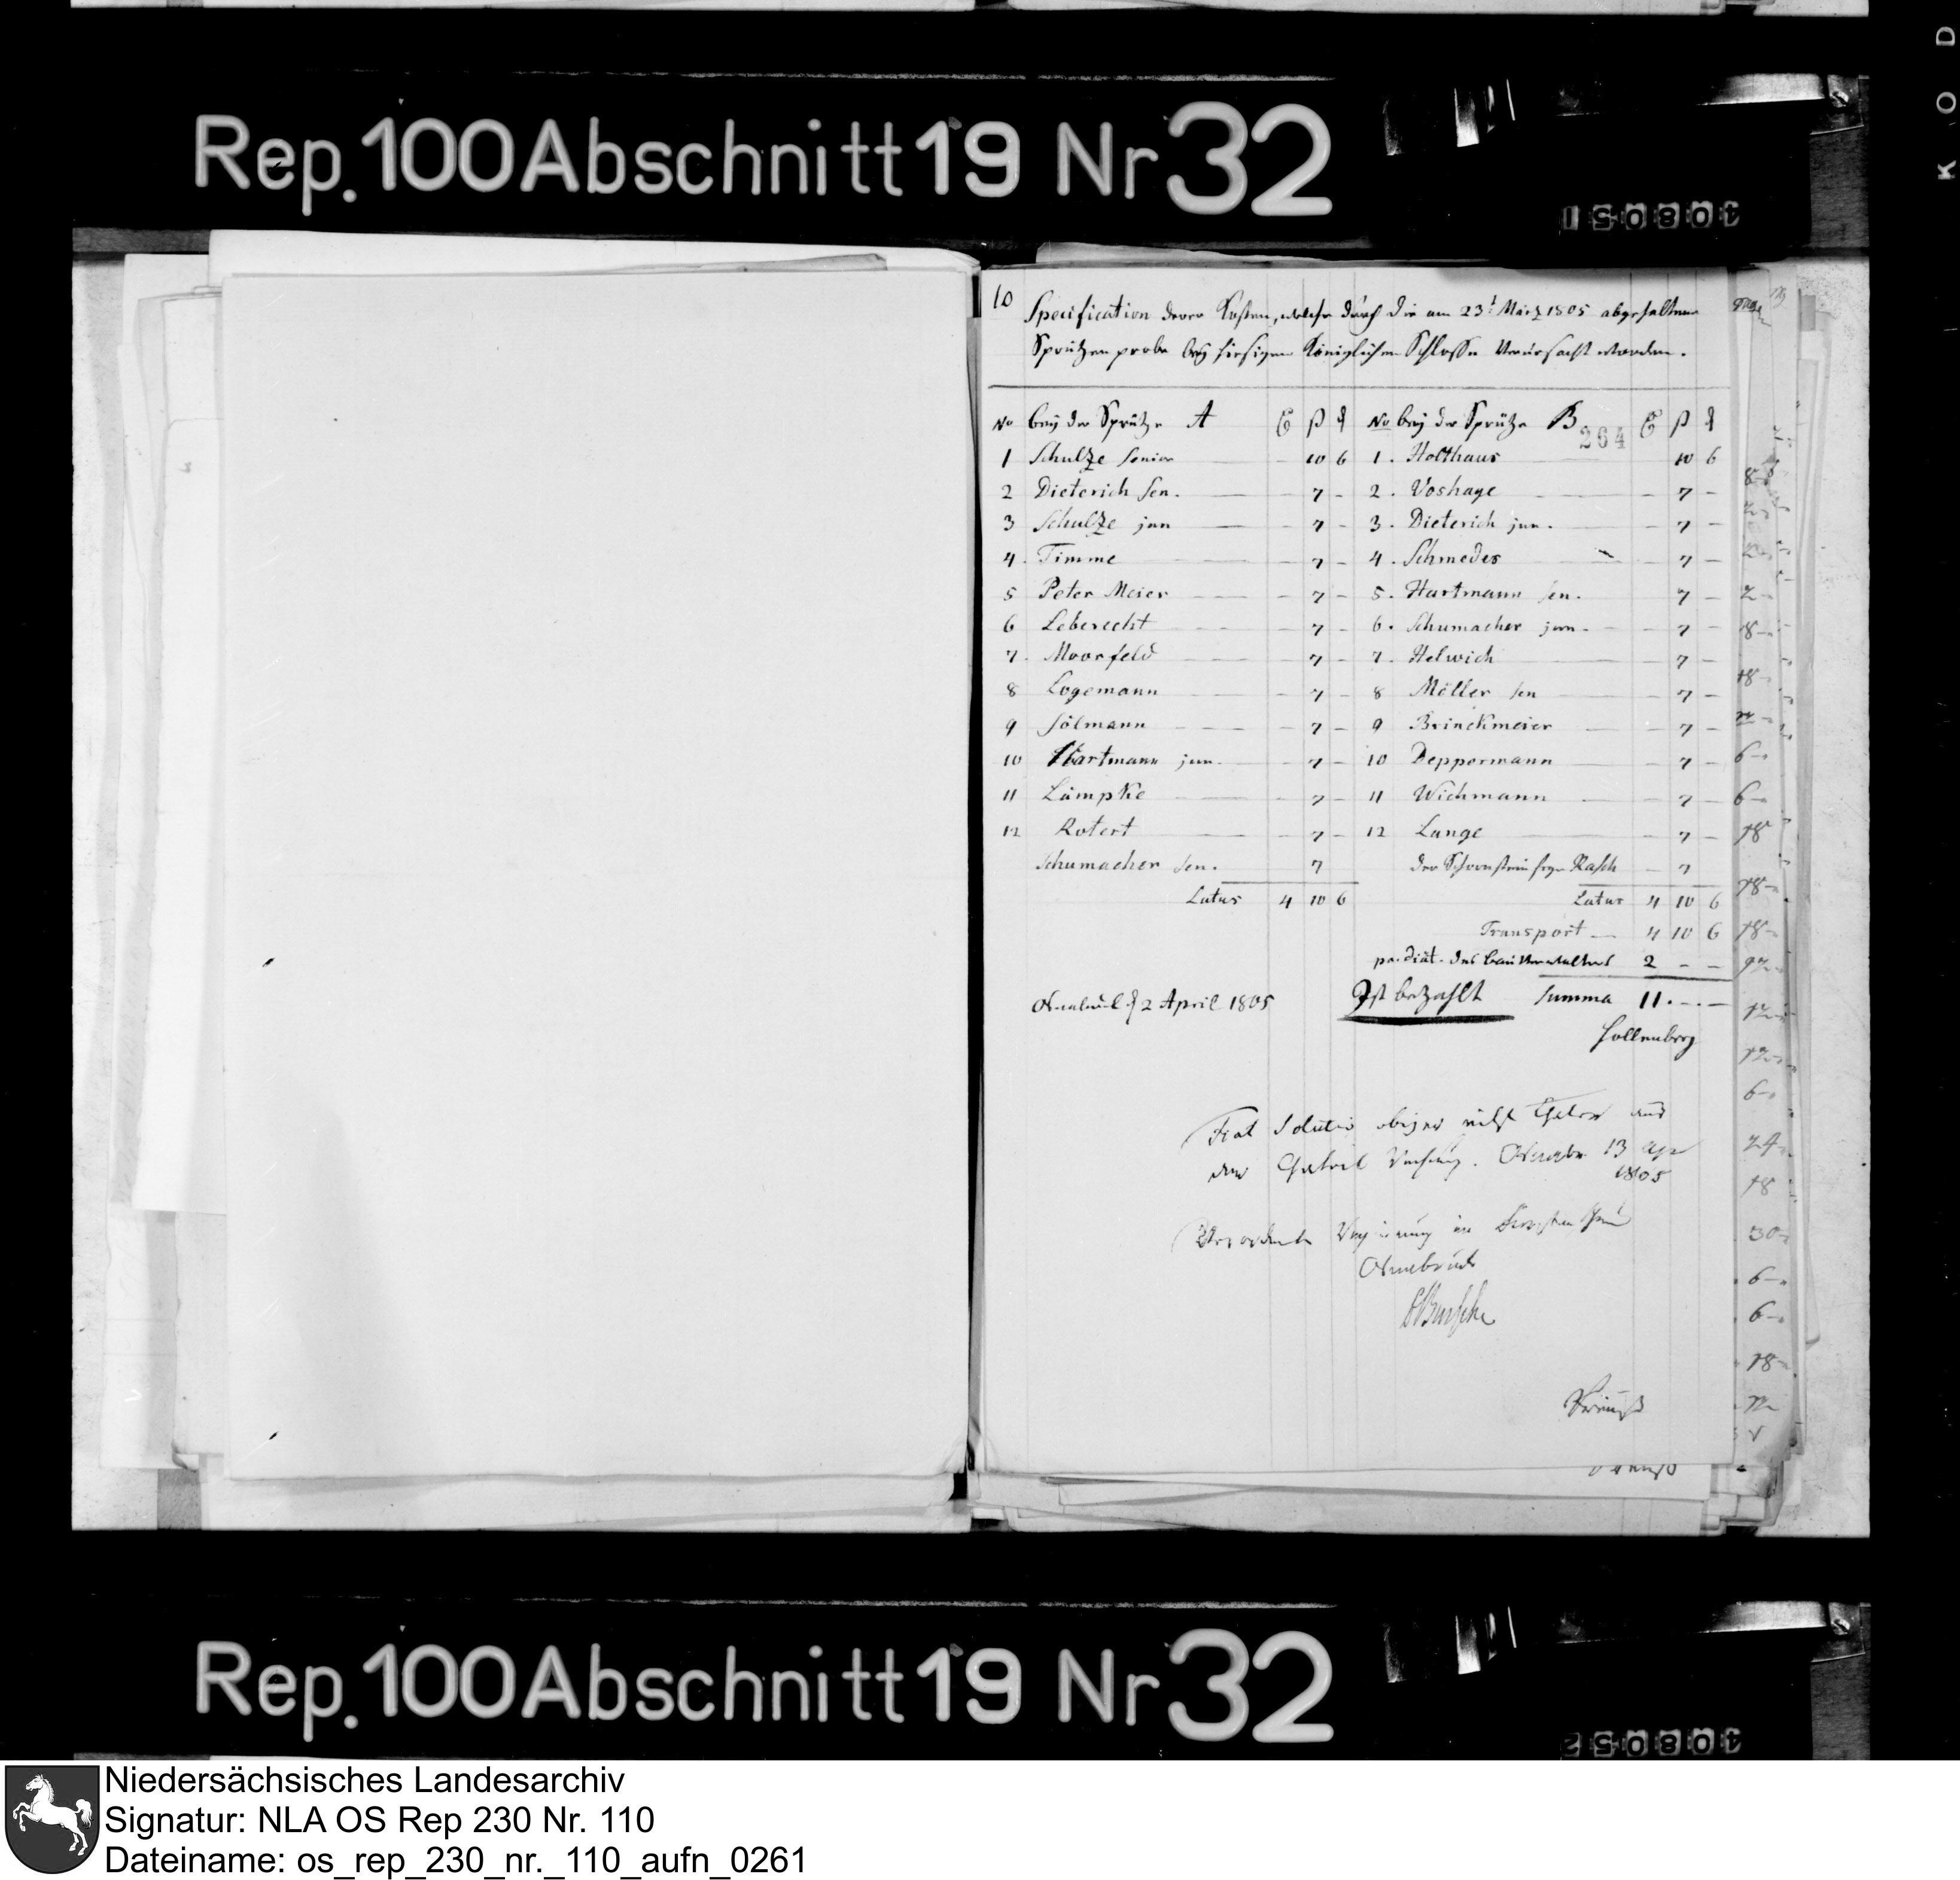 K O D
Rep. 100 Abschnitt 19 Nr 32
408051
10 Specification derer Kosten, welche durch die am 23t März 1805 abgehaltene
Sprützenprobe bey hiesigem Königlichen Schlosse verursacht worden.
No bey der Sprütze A ß ₰ No bey der Sprütze B ß ₰
264
1 Schulze senior 10 6 1. Holthaus 10 6
2 Dieterich sen. — 7 - 2. Voshage — 7 -
3 Schulze jun — 7 - 3. Dieterich jun. — 7 -
4. Timme — 7 - 4. Schmedes — 7 -
5 Peter Meier — 7 - 5. Hartmann sen. 7 -
6 Leberecht — 7 - 6. Schumacher jun. — 7 -
7. Moorfeld — 7 - 7. Helwich — 7 -
8 Logemann — 7 - 8 Möller sen — 7 -
9 Sölmann — 7 - 9 Brinckmeier — 7 -
10 Hartmann jun. — 7 - 10 Deppermann — 7 -
11 Lämpke — 7 - 11 Wichmann — 7 -
12 Rotert — 7 - 12 Lange — 7 -
Schumacher sen. 7 der Schornsteinfeger Rasch — 7
Latus 4 10 6 Latus 4 10 6
Transport — 4 10 6
pr. diät. des Bauverwalters 2 - -
Osnabrück d 2 April 1805 Ist bezahlt Summa 11. - . -
Hollenberg
Fiat Solutio obiger eilf Thaler aus
der 13 Apr
1805
Regierung im
Osnabrück
vBussche
Struckmann
Rep. 100 Abschnitt 19 Nr 32
408052
Niedersächsisches Landesarchiv
Signatur: NLA OS Rep 230 Nr. 110
Dateiname: os_rep_230_nr._110_aufn_0261